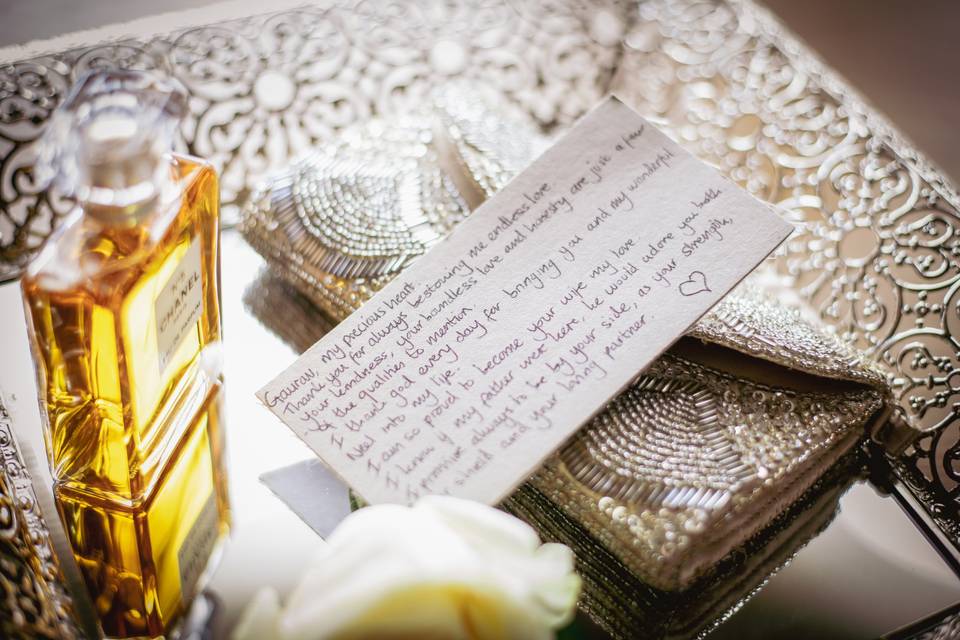 CHANEL
Gaurav, my precious heart
Thank you for always bestowing me endless love
Your kindness, your love and honesty are just a few
of the qualities to mention.
I thank god every day for bringing you and my wonderful
Neel into my life.
I am so proud to become your wife my love.
I know if my father were here, he would adore you both
I promise always to be by your side, as your strength,
and your loving partner.